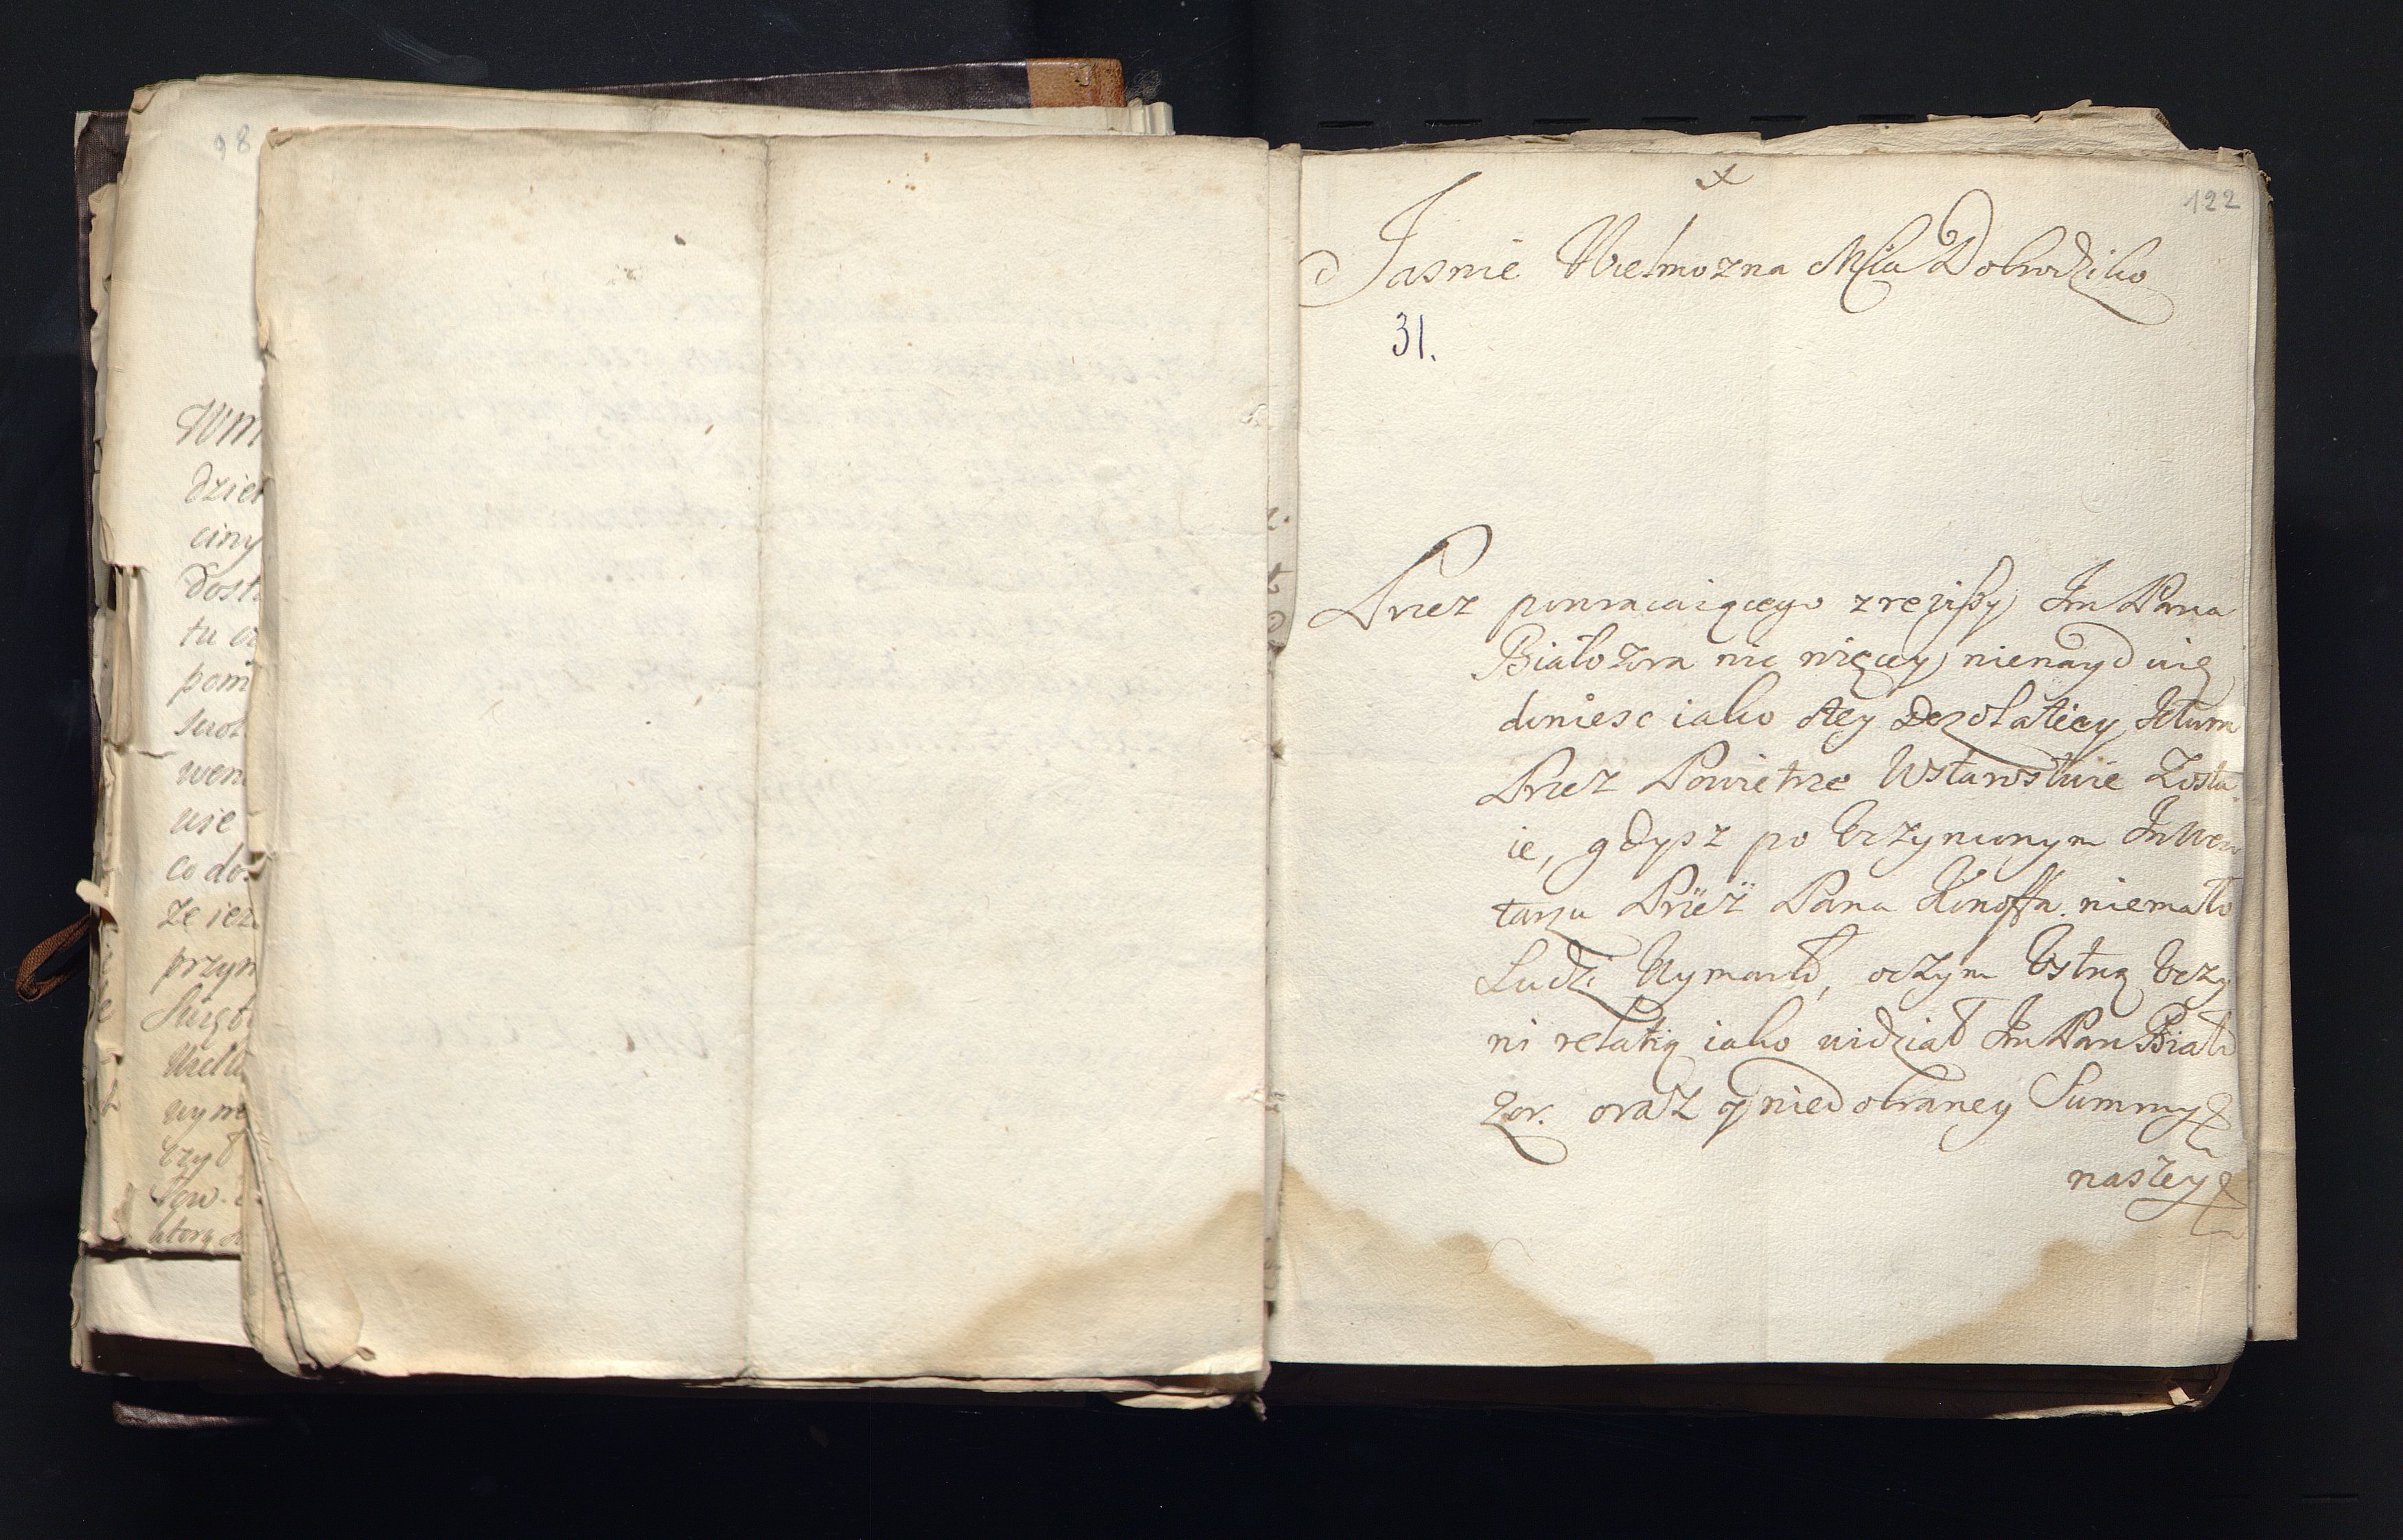 98
Wm
dzie
ciny
dost
tu
pom
wem
wie
co do
ze iez
przyn
uym
czył
ktorą
122
Jasnie Wielmozna Mscia Dobrodziko
31.
Przez powracaiącego z rewissy Im Pana
Białozora nic więcey nienayduię
doniesc iako o tey Dezolatiey Ktura
Przez Powietrze Wstarostwie Zosta
ie, gdysz po Vczynionym InWen
tarzu Przez Pana Konoffa. niemało
Ludzi Wymarło, oczym Vstną Vczy
ni relatią iako widział Im Pan Biało
zor. oraz o niedobraney Summy
naszey